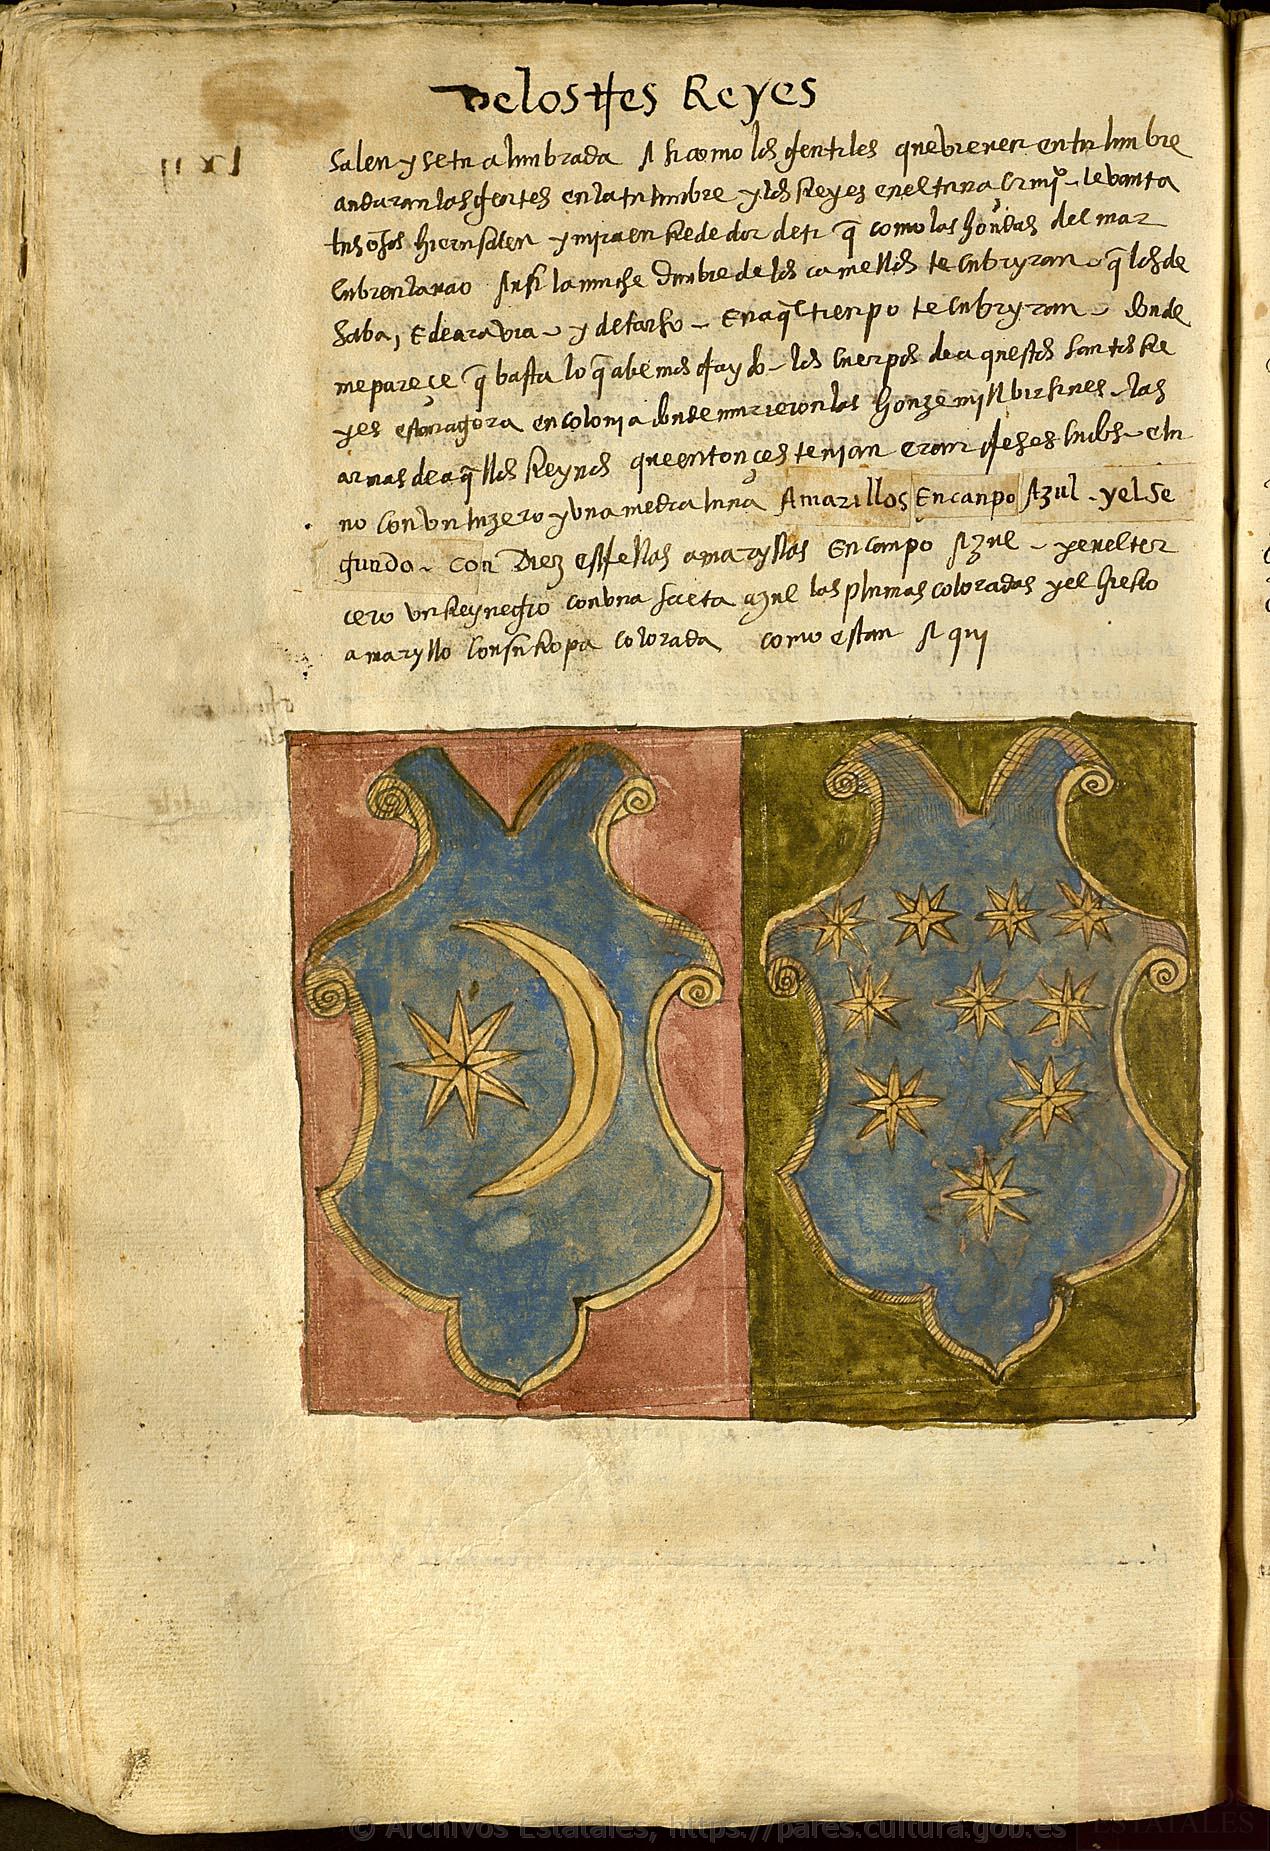 De los tres Reyes
salen y se tu alumbrada Asi como los gentiles que vienen en tu lumbre
andaran las gentes en la tu lumbre y los Reyes en el levanta
tus ojos hierusalen y mira en Rededor de ti q̃ como las hondas del mar
Ansi la muchedumbre de los camellos te cubryran q̃ los de
saba, E de aravia y de tarso En aq̃l tienpo te cubryran donde
me pareçe q̃ basta lo q̃ abemos los cuerpos de aquestos santos Re
yes estan agora en colonia donde murieron las honze mill birjines las
armas de aq̃llos Reynos que entonçes tenjan eran desos el u
no con un luzero y una media luna Amarillos En canpo Azul y el se
gundo con Diez estrellas amaryllas En campo Azul y en el ter
cero un Rey negro con una saeta azul las plumas coloradas y el hierro
amaryllo con su Ropa colorada como estan Aqui
© Archivos Estatales, https://pares.cultura.gob.es
ARCHIVOS
ESTATALES